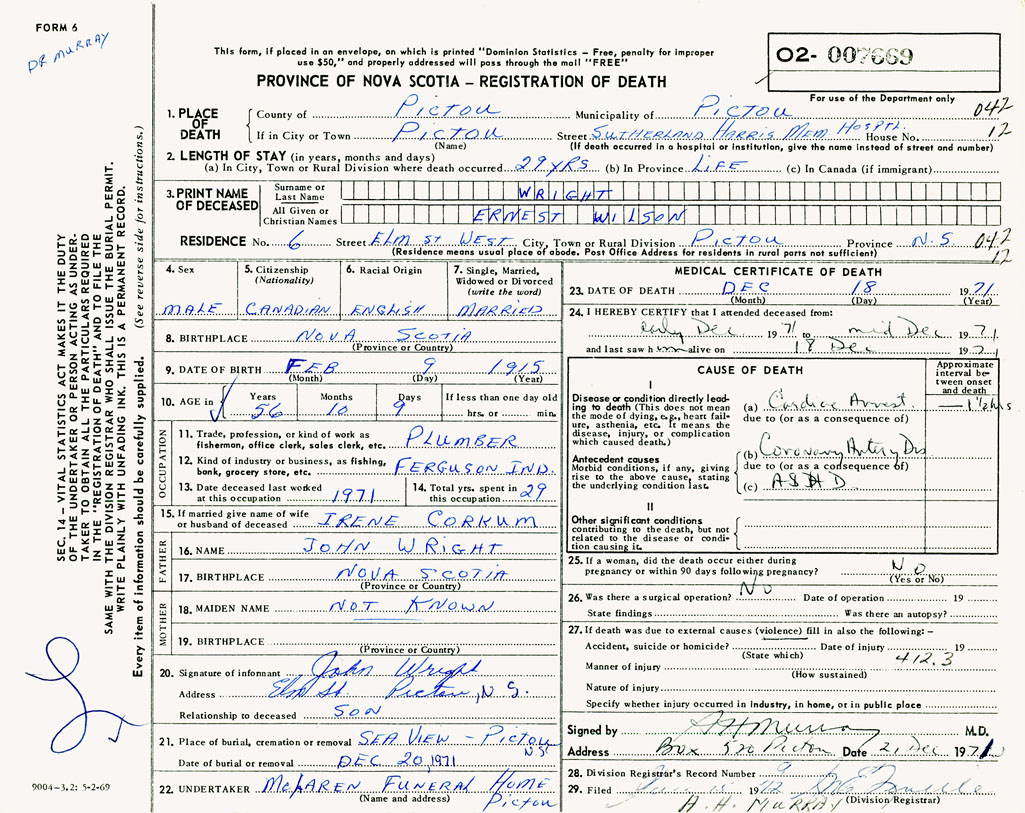 FORM 6
DR MURRAY
This form, if placed in an envelope, on which is printed "Dominion Statistics – Free, penalty for improper
use $50," and properly addressed will pass through the mail "FREE"
PROVINCE OF NOVA SCOTIA – REGISTRATION OF DEATH
02- 007669
For use of the Department only
1. PLACE OF DEATH
County of PICTOU Municipality of PICTOU 042
If in City or Town PICTOU Street SUTHERLAND HARRIS MEM. HOSPTL. House No. 12
(Name) (If death occurred in a hospital or institution, give the name instead of street and number)
2. LENGTH OF STAY (in years, months and days)
(a) In City, Town or Rural Division where death occurred 29 YRS (b) In Province LIFE (c) In Canada (if immigrant)
3. PRINT NAME OF DECEASED
Surname or Last Name WRIGHT
All Given or Christian Names ERNEST WILSON
RESIDENCE No. 6 Street ELM ST WEST City, Town or Rural Division PICTOU Province N.S. 042
(Residence means usual place of abode. Post Office Address for residents in rural parts not sufficient) 12
4. Sex
MALE
5. Citizenship (Nationality)
CANADIAN
6. Racial Origin
ENGLISH
7. Single, Married, Widowed or Divorced (write the word)
MARRIED
8. BIRTHPLACE NOVA SCOTIA
(Province or Country)
9. DATE OF BIRTH FEB 9 1915
(Month) (Day) (Year)
10. AGE in Years Months Days If less than one day old
56 10 9 hrs. or min.
OCCUPATION
11. Trade, profession, or kind of work as fisherman, office clerk, sales clerk, etc. PLUMBER
12. Kind of industry or business, as fishing, bank, grocery store, etc. FERGUSON IND.
13. Date deceased last worked at this occupation 1971
14. Total yrs. spent in this occupation 29
15. If married give name of wife or husband of deceased IRENE CORKUM
FATHER
16. NAME JOHN WRIGHT
17. BIRTHPLACE NOVA SCOTIA
(Province or Country)
MOTHER
18. MAIDEN NAME NOT KNOWN
19. BIRTHPLACE
(Province or Country)
20. Signature of informant John Wright
Address Elm St Pictou, N.S.
Relationship to deceased SON
21. Place of burial, cremation or removal SEA VIEW – PICTOU N.S.
Date of burial or removal DEC 20, 1971
22. UNDERTAKER McLAREN FUNERAL HOME
(Name and address) Pictou
MEDICAL CERTIFICATE OF DEATH
23. DATE OF DEATH DEC 18 1971
(Month) (Day) (Year)
24. I HEREBY CERTIFY that I attended deceased from:
early Dec 1971 to mid Dec 1971
and last saw him alive on 18 Dec 1971
CAUSE OF DEATH
Approximate interval between onset and death
I
Disease or condition directly leading to death (This does not mean the mode of dying, e.g., heart failure, asthenia, etc. It means the disease, injury, or complication which caused death.)
(a) Cardiac Arrest – 1½ hrs
due to (or as a consequence of)
Antecedent causes
Morbid conditions, if any, giving rise to the above cause, stating the underlying condition last.
(b) Coronary Artery Dis
due to (or as a consequence of)
(c) ASHD
II
Other significant conditions
contributing to the death, but not related to the disease or condition causing it.
25. If a woman, did the death occur either during
pregnancy or within 90 days following pregnancy? NO
(Yes or No)
26. Was there a surgical operation? NO Date of operation 19
State findings Was there an autopsy?
27. If death was due to external causes (violence) fill in also the following: –
Accident, suicide or homicide? Date of injury 19
(State which) 412.3
Manner of injury
(How sustained)
Nature of injury
Specify whether injury occurred in industry, in home, or in public place
Signed by A H Murray M.D.
Address Box 520 Pictou Date 21 Dec 1971
28. Division Registrar's Record Number 9
29. Filed 1972
A. H. MURRAY (Division Registrar)
SEC. 14 – VITAL STATISTICS ACT MAKES IT THE DUTY
OF THE UNDERTAKER OR PERSON ACTING AS UNDER-
TAKER TO OBTAIN ALL THE PARTICULARS REQUIRED
IN THE "REGISTRATION OF DEATH" AND TO FILE THE
SAME WITH THE DIVISION REGISTRAR WHO SHALL ISSUE THE BURIAL PERMIT.
WRITE PLAINLY WITH UNFADING INK. THIS IS A PERMANENT RECORD.
Every item of information should be carefully supplied. (See reverse side for instructions.)
9004-3.2: 5-2-69